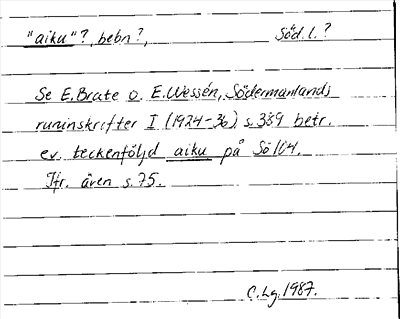 "aiku"?, bebn?, Söd. l.?
Se E. Brate o. E. Wessén, Södermanlands
runinskrifter I (1924-36) s. 389 betr.
ev. teckenföljd aiku på Sö
Jfr. även s. 75.
C. Lg. 1987.